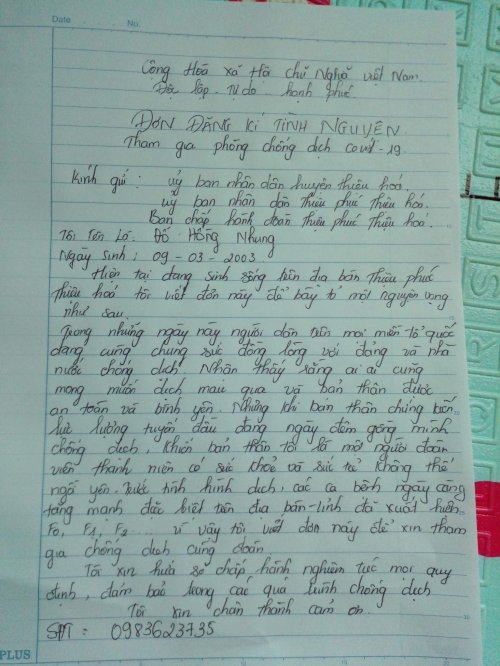 Date No.
Cộng Hóa xã Hội chủ Nghĩa việt Nam.
Độc lập - Tự do - hạnh phúc.
ĐƠN ĐĂNG KÍ TÌNH NGUYỆN
Tham gia phòng chống dịch covid-19
Kính gửi : uỷ ban nhân dân huyện thiệu hóa.
uỷ ban nhân dân thiệu phúc thiệu hóa.
Ban chấp hành đoàn thiệu phúc thiệu hoá.
Tôi Tên Là: Đỗ Hồng Nhung
Ngày sinh : 09 - 03 - 2003
Hiện tại đang sinh sống trên địa bàn thiệu phúc
thiệu hoá tôi viết đơn này để bày tỏ một nguyện vọng
như sau.
Trong những ngày này người dân trên mọi miền tổ quốc
đang cùng chung sức đồng lòng với đảng và nhà
nước chống dịch. Nhận thấy rằng ai ai cũng
mong muốn dịch mau qua và bản thân được
an toàn và bình yên. Nhưng khi bản thân chứng kiến
lực lượng tuyến đầu đang ngày đêm gồng mình
chống dịch, khiến bản thân tôi là một người đoàn
viên thanh niên có sức khoẻ và sức trẻ không thể
ngồi yên. Trước tình hình dịch, các ca bệnh ngày càng
tăng mạnh đặc biệt trên địa bàn tỉnh đã xuất hiện
F0, F1, F2 ... vì vậy tôi viết đơn này để xin tham
gia chống dịch cùng đoàn
Tôi xin hứa sẽ chấp hành nghiêm túc mọi quy
định, đảm bảo trong các quá trình chống dịch
Tôi xin chân thành cảm ơn.
SĐT : 0983623735
PLUS